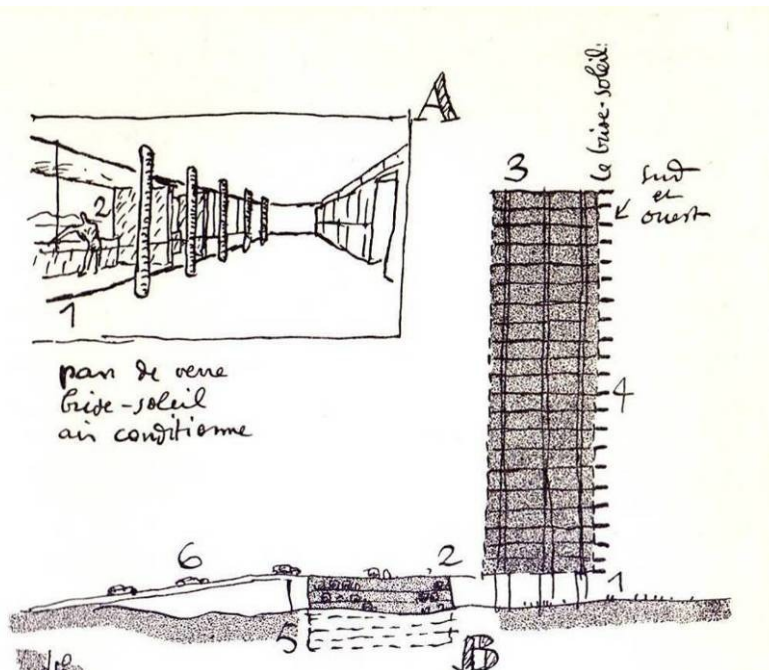 A
2
1
pan de verre
brise-soleil
air conditionne
3
le brise-soleil
sud
et
ouest
4
6
2
1
5
B